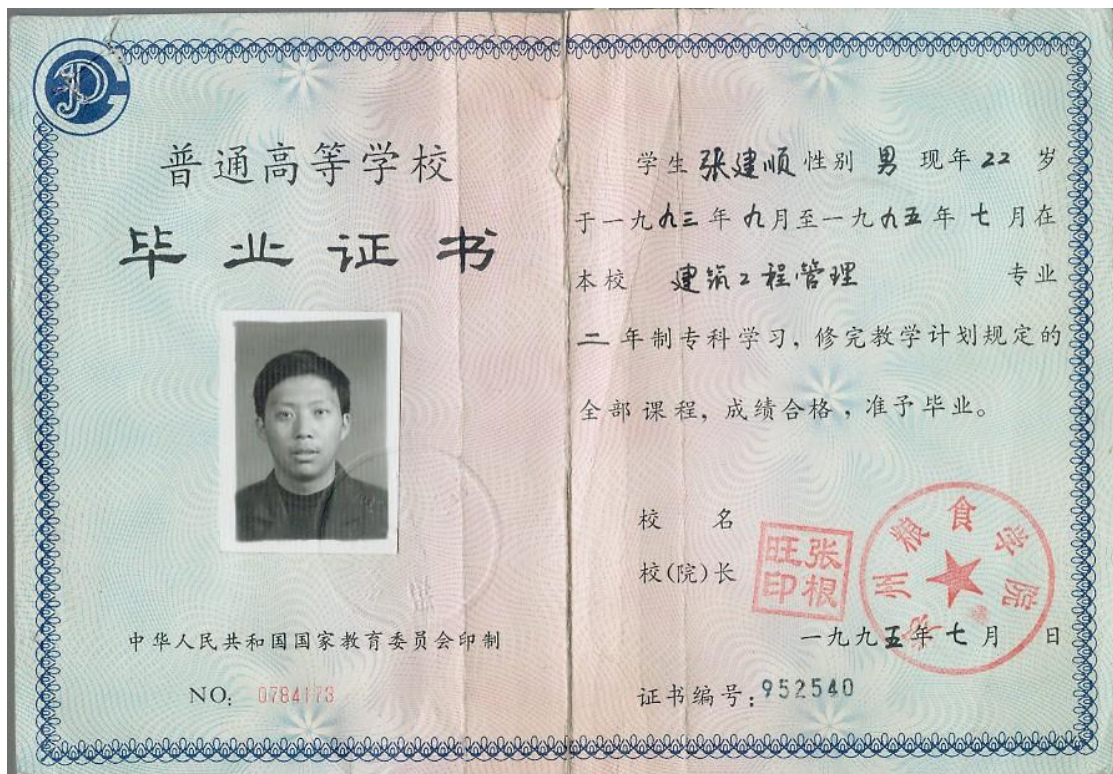 普通高等学校
毕业证书
中华人民共和国国家教育委员会印制
NO: 0784173
学生 张建顺 性别 男 现年 22 岁
于一九九三年九月至一九九五年七月在
本校 建筑工程管理 专业
二年制专科学习，修完教学计划规定的
全部课程，成绩合格，准予毕业。
校名
校(院)长
张根旺印
州粮食学院
一九九五年七月 日
证书编号：952540